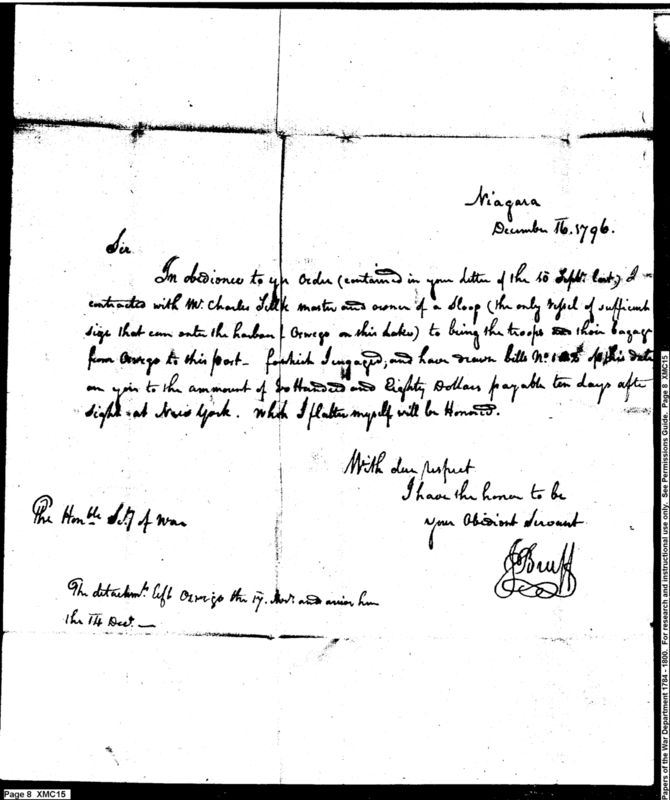 Niagara
December 16. 1796.
Sir
In obedience to yr Order (contained in your Letter of the 10 Septr. last,) I
contracted with Mr. Charles master and owner of a Sloop (the only vessel of sufficient
size that can enter the harbour of Oswego on this Lake) to bring the troops and their bagage
from Oswego to this post - for which I engaged, and have drawn bills No. of this date
on you to the ammount of Hundred and Eighty Dollars payable ten days after
sight at New York. Which I flatter myself will be Honored.
With due respect
I have the honor to be
your Obedient Servant
JBruff
The Honble Secy of War
The detachmt. left Oswego the 17. Novr. and arrivd here
the 14 Decr.
Page 8 XMC15
Papers of the War Department 1784 - 1800. For research and instructional use only. See Permissions Guide. Page 8 XMC15